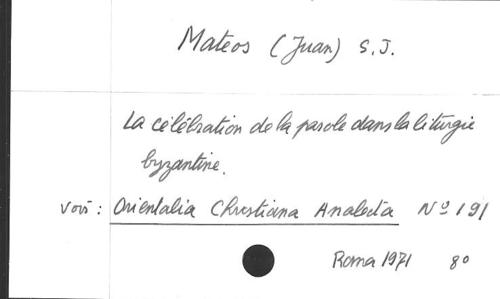 Mateos (Juan) S.J.
La célébration de la parole dans la liturgie
byzantine.
Voir : Orientalia Christiana Analecta Nº 191
Roma 1971 8º